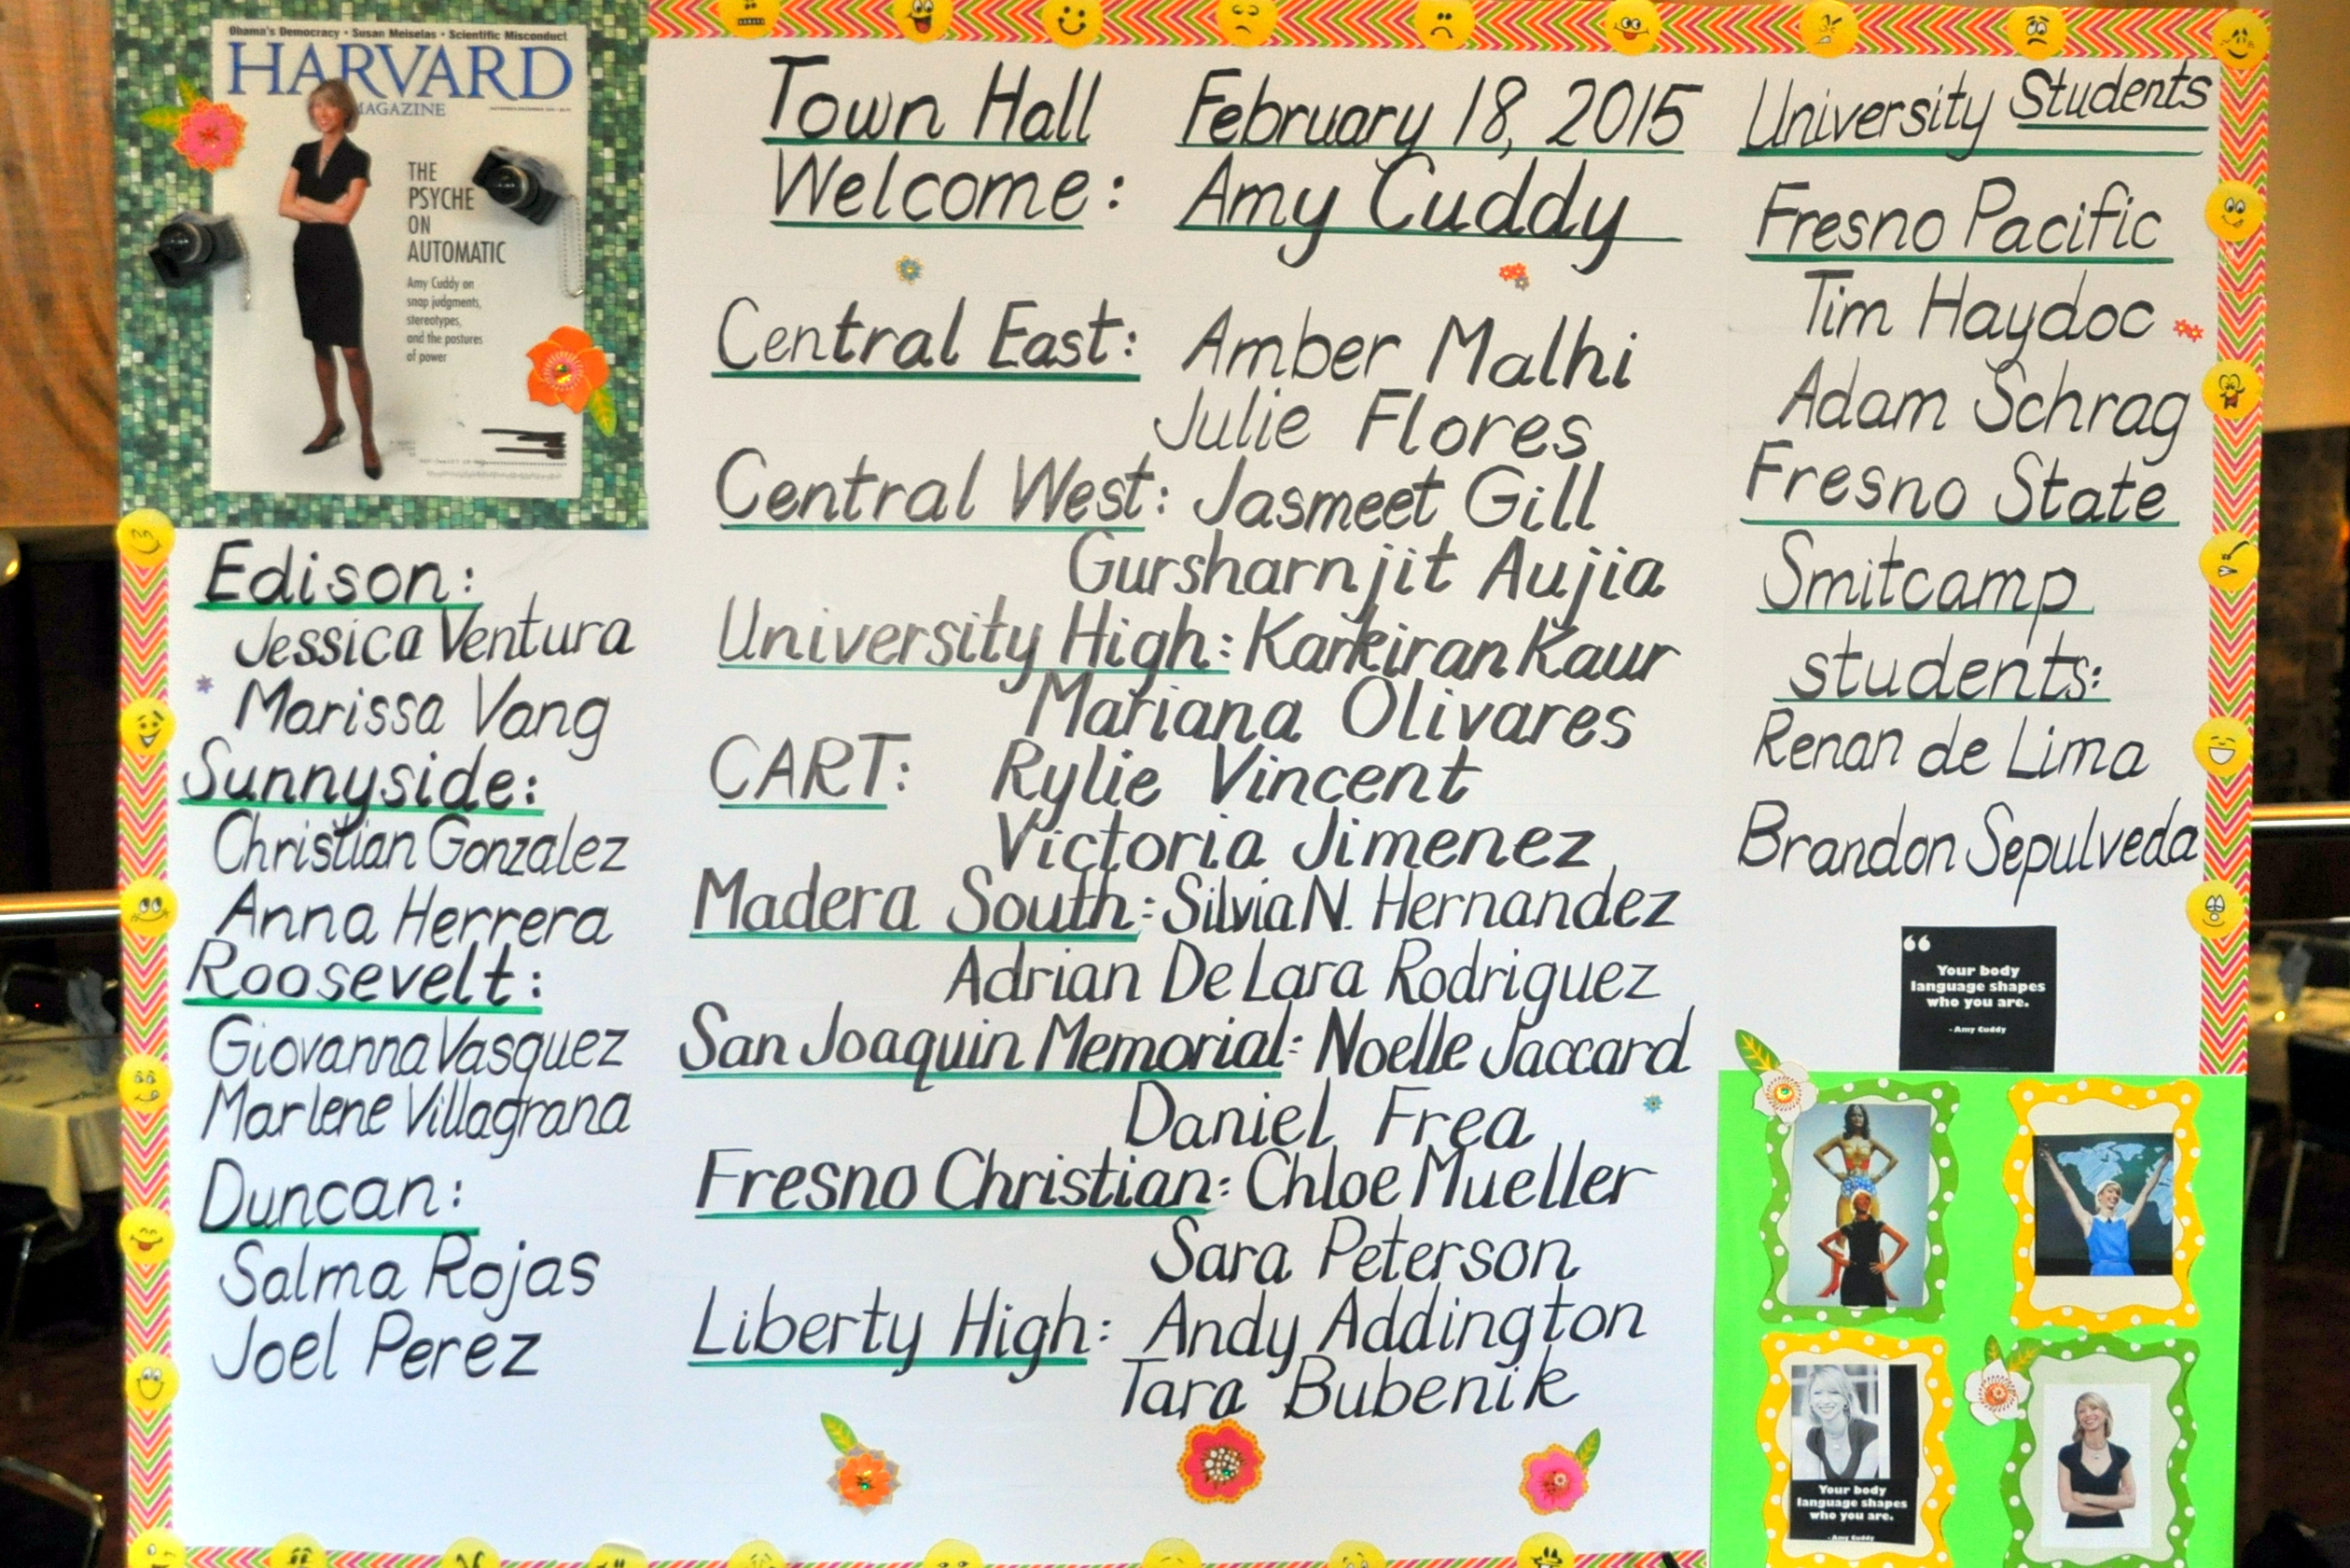 Obama's Democracy • Susan Meiselas • Scientific Misconduct
HARVARD
MAGAZINE
THE
PSYCHE
ON
AUTOMATIC
Amy Cuddy on
snap judgments,
stereotypes,
and the postures
of power
Edison:
Jessica Ventura
Marissa Vang
Sunnyside:
Christian Gonzalez
Anna Herrera
Roosevelt:
Giovanna Vasquez
Marlene Villagrana
Duncan:
Salma Rojas
Joel Perez
Town Hall February 18, 2015
Welcome: Amy Cuddy
Central East: Amber Malhi
Julie Flores
Central West: Jasmeet Gill
Gursharnjit Aujia
University High: Karkiran Kaur
Mariana Olivares
CART: Rylie Vincent
Victoria Jimenez
Madera South: Silvia N. Hernandez
Adrian De Lara Rodriguez
San Joaquin Memorial: Noelle Jaccard
Daniel Frea
Fresno Christian: Chloe Mueller
Sara Peterson
Liberty High: Andy Addington
Tara Bubenik
University Students
Fresno Pacific
Tim Haydoc
Adam Schrag
Fresno State
Smitcamp
students:
Renan de Lima
Brandon Sepulveda
“
Your body
language shapes
who you are.
- Amy Cuddy
Your body
language shapes
who you are.
- Amy Cuddy